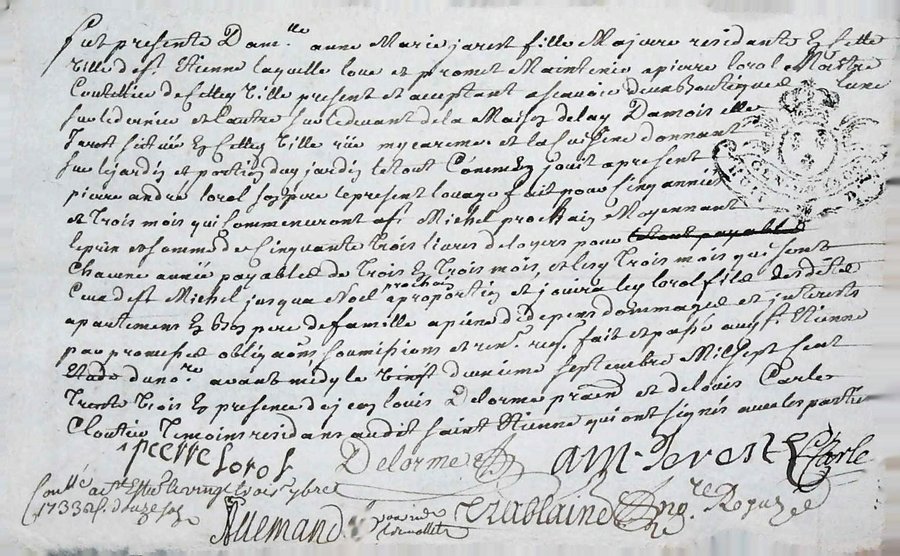 fut presente Dam.lle anne Marie jarest fille Majeure residante En cette
ville de st. Etienne laquelle loue et promet Maintenir a pierre loral Maitre
Coutellier de cette ville present et aceptant ascavoir deux boutiques lune
sur le derrie et lautre sur le devant de la Maison delad Damoiselle
Jarest scituée En cette ville rue mycareme et la cuisine donnant
sur le jardin et portion du jardin le tout Comme En jouit apresent
pierre andre loral son pere le present louage fait pour Cinq années
et trois mois qui Commenceront a st Michel prochain Moyennant
le prix et somme de Cinquante trois livres de loyers pour
Chacune année payables de trois En trois mois, et les trois mois qui sont
de st Michel jusqua Noel prochain a proportion et jouira led loral fils desdits
apartemens En bon pere de famille a peine de depens dommages et interests
par promesses obligaons soumissions et ren.on req. fait et passé aud st. Etienne
Etude du no.re avant midy le vingt deuxieme septembre Mil sept cent
trente trois En presence de jean louis Delorme praend et de louis Carle
Cloutier temoins residans audit saint Etienne qui ont signés avec les parties
pierre loral Delorme am. Jerest L Carle
Conllé a st Estne le vingt trois 7bre
1733 R. douze sols
Allemand Trablaine No.re Royal